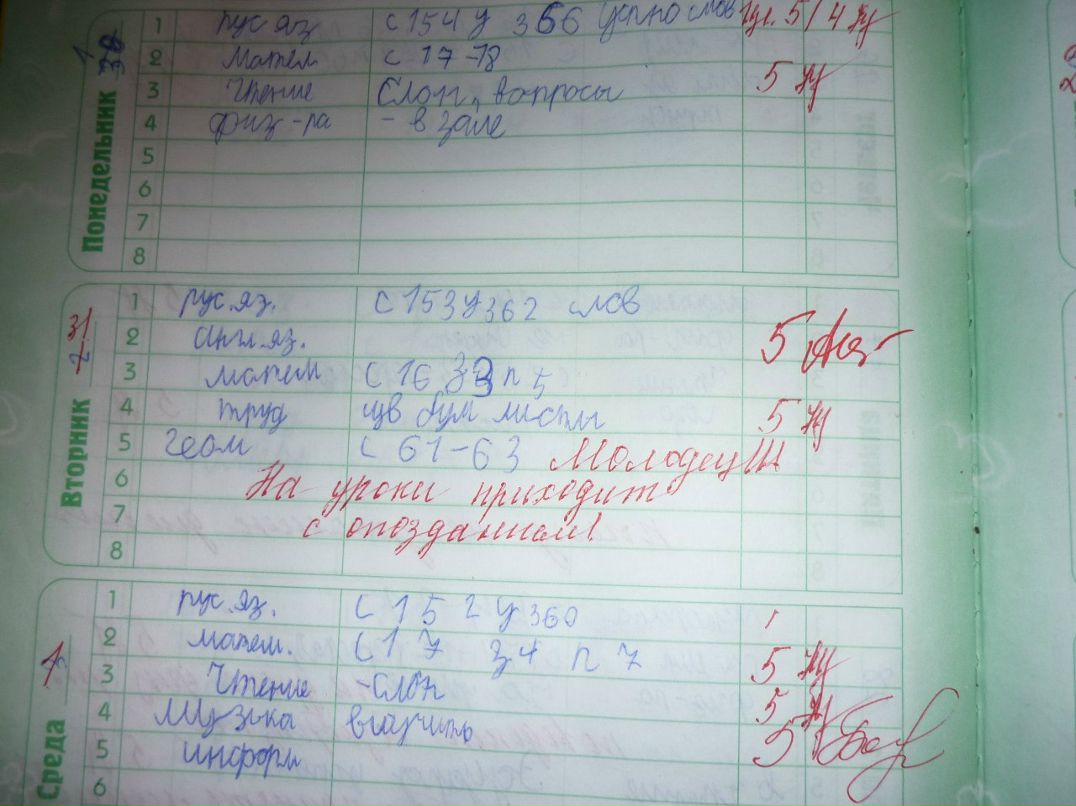 Понедельник
1 рус яз с 154 у 366 устно слов 5/4
2 матем с 17-18
3 Чтение Слон, вопросы 5
4 физ-ра - в зале
5
6
7
8
Вторник 31
1 рус.яз. с 153 у 362 слов
2 англ.яз. 5
3 матем с 16 п 5
4 труд цв бум листы 5
5 геом с 61-63 Молодец!!!
6 На уроки приходит
7 с опозданием!
8
Среда
1 рус.яз. с 152 у 360
2 матем. с 17 з 4 п 7 5
3 Чтение -Слон 5
4 Музыка выучить 5
5 информ
6